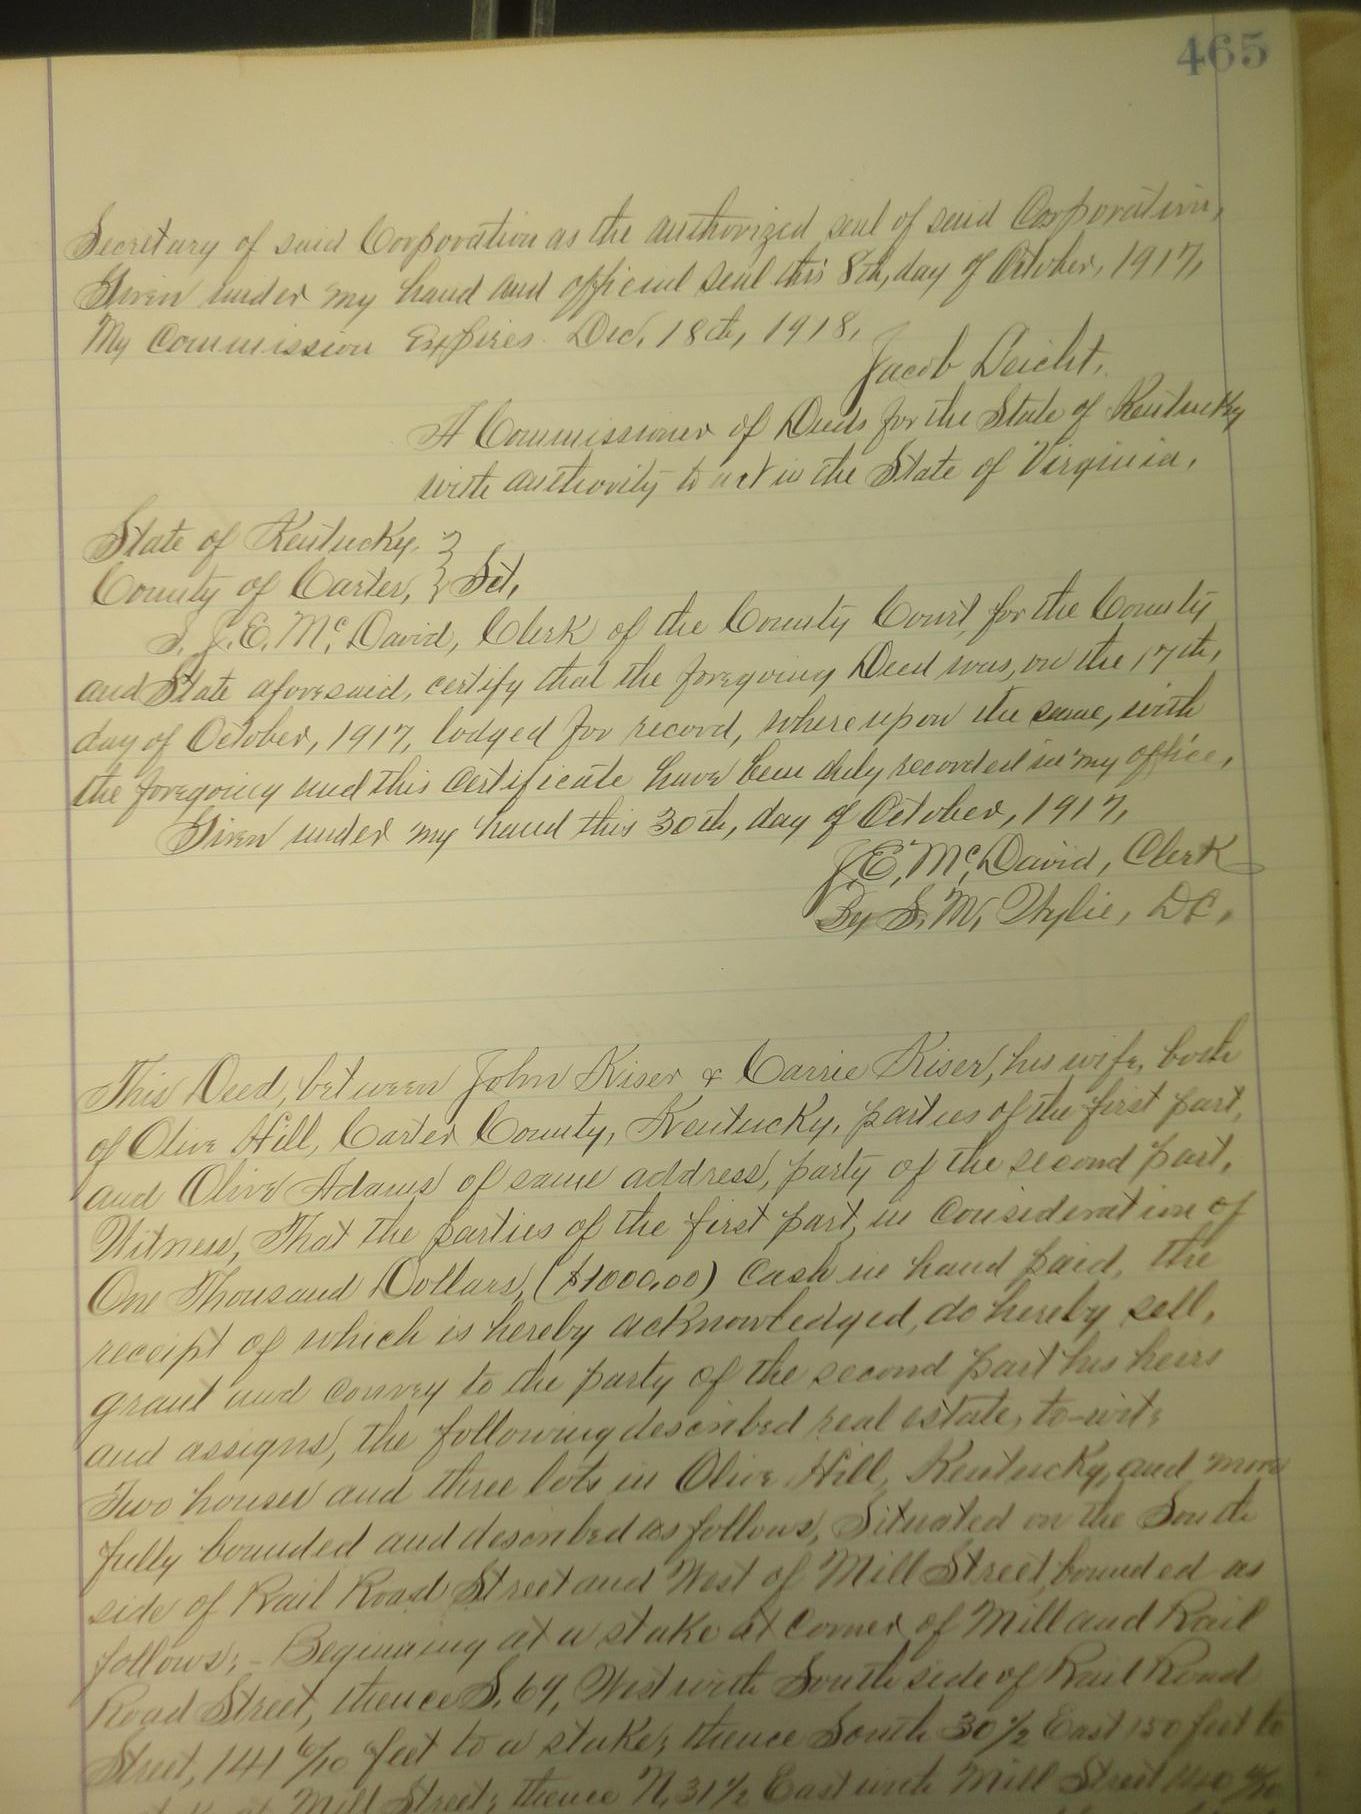 465
Secretary of said Corporation as the authorized seal of said Corporation,
Given under my hand and official seal this 8th, day of October, 1917,
My Commission Expires Dec, 18th, 1918,
Jacob Deicht,
A Commissioner of Deeds for the State of Kentucky
with authority to act in the State of Virginia,
State of Kentucky, }
County of Carter, } Sct,
I, J.E. Mc, David, Clerk of the County Court, for the County
and State aforesaid, certify that the foregoing Deed was, on the 17th,
day of October, 1917, lodged for record, whereupon the same, with
the foregoing and this certificate have been duly recorded in my office,
Given under my hand this 30th, day of October, 1917,
J.E, Mc, David, Clerk
By S. M, Wylie, DC,
This Deed, between John Kiser & Carrie Kiser, his wife, both
of Olive Hill, Carter County, Kentucky, parties of the first part,
and Olive Adams of same address, party of the second part,
Witness, That the parties of the first part, in consideration of
One Thousand Dollars, ($1000,00) Cash in hand paid, the
receipt of which is hereby acknowledged, do hereby sell,
grant and convey to the party of the second part his heirs
and assigns, the following described real estate, to-wit:
Two houses and three lots in Olive Hill, Kentucky, and more
fully bounded and described as follows, Situated on the South
side of Rail Road Street and West of Mill Street, bounded as
follows; - Beginning at a stake at corner of Mill and Rail
Road Street, thence S. 69, West with South side of Rail Road
Street, 141 6/10 feet to a stake; thence South 30 1/2 East 150 feet to
Mill Street; thence N, 31 1/2 East with Mill Street